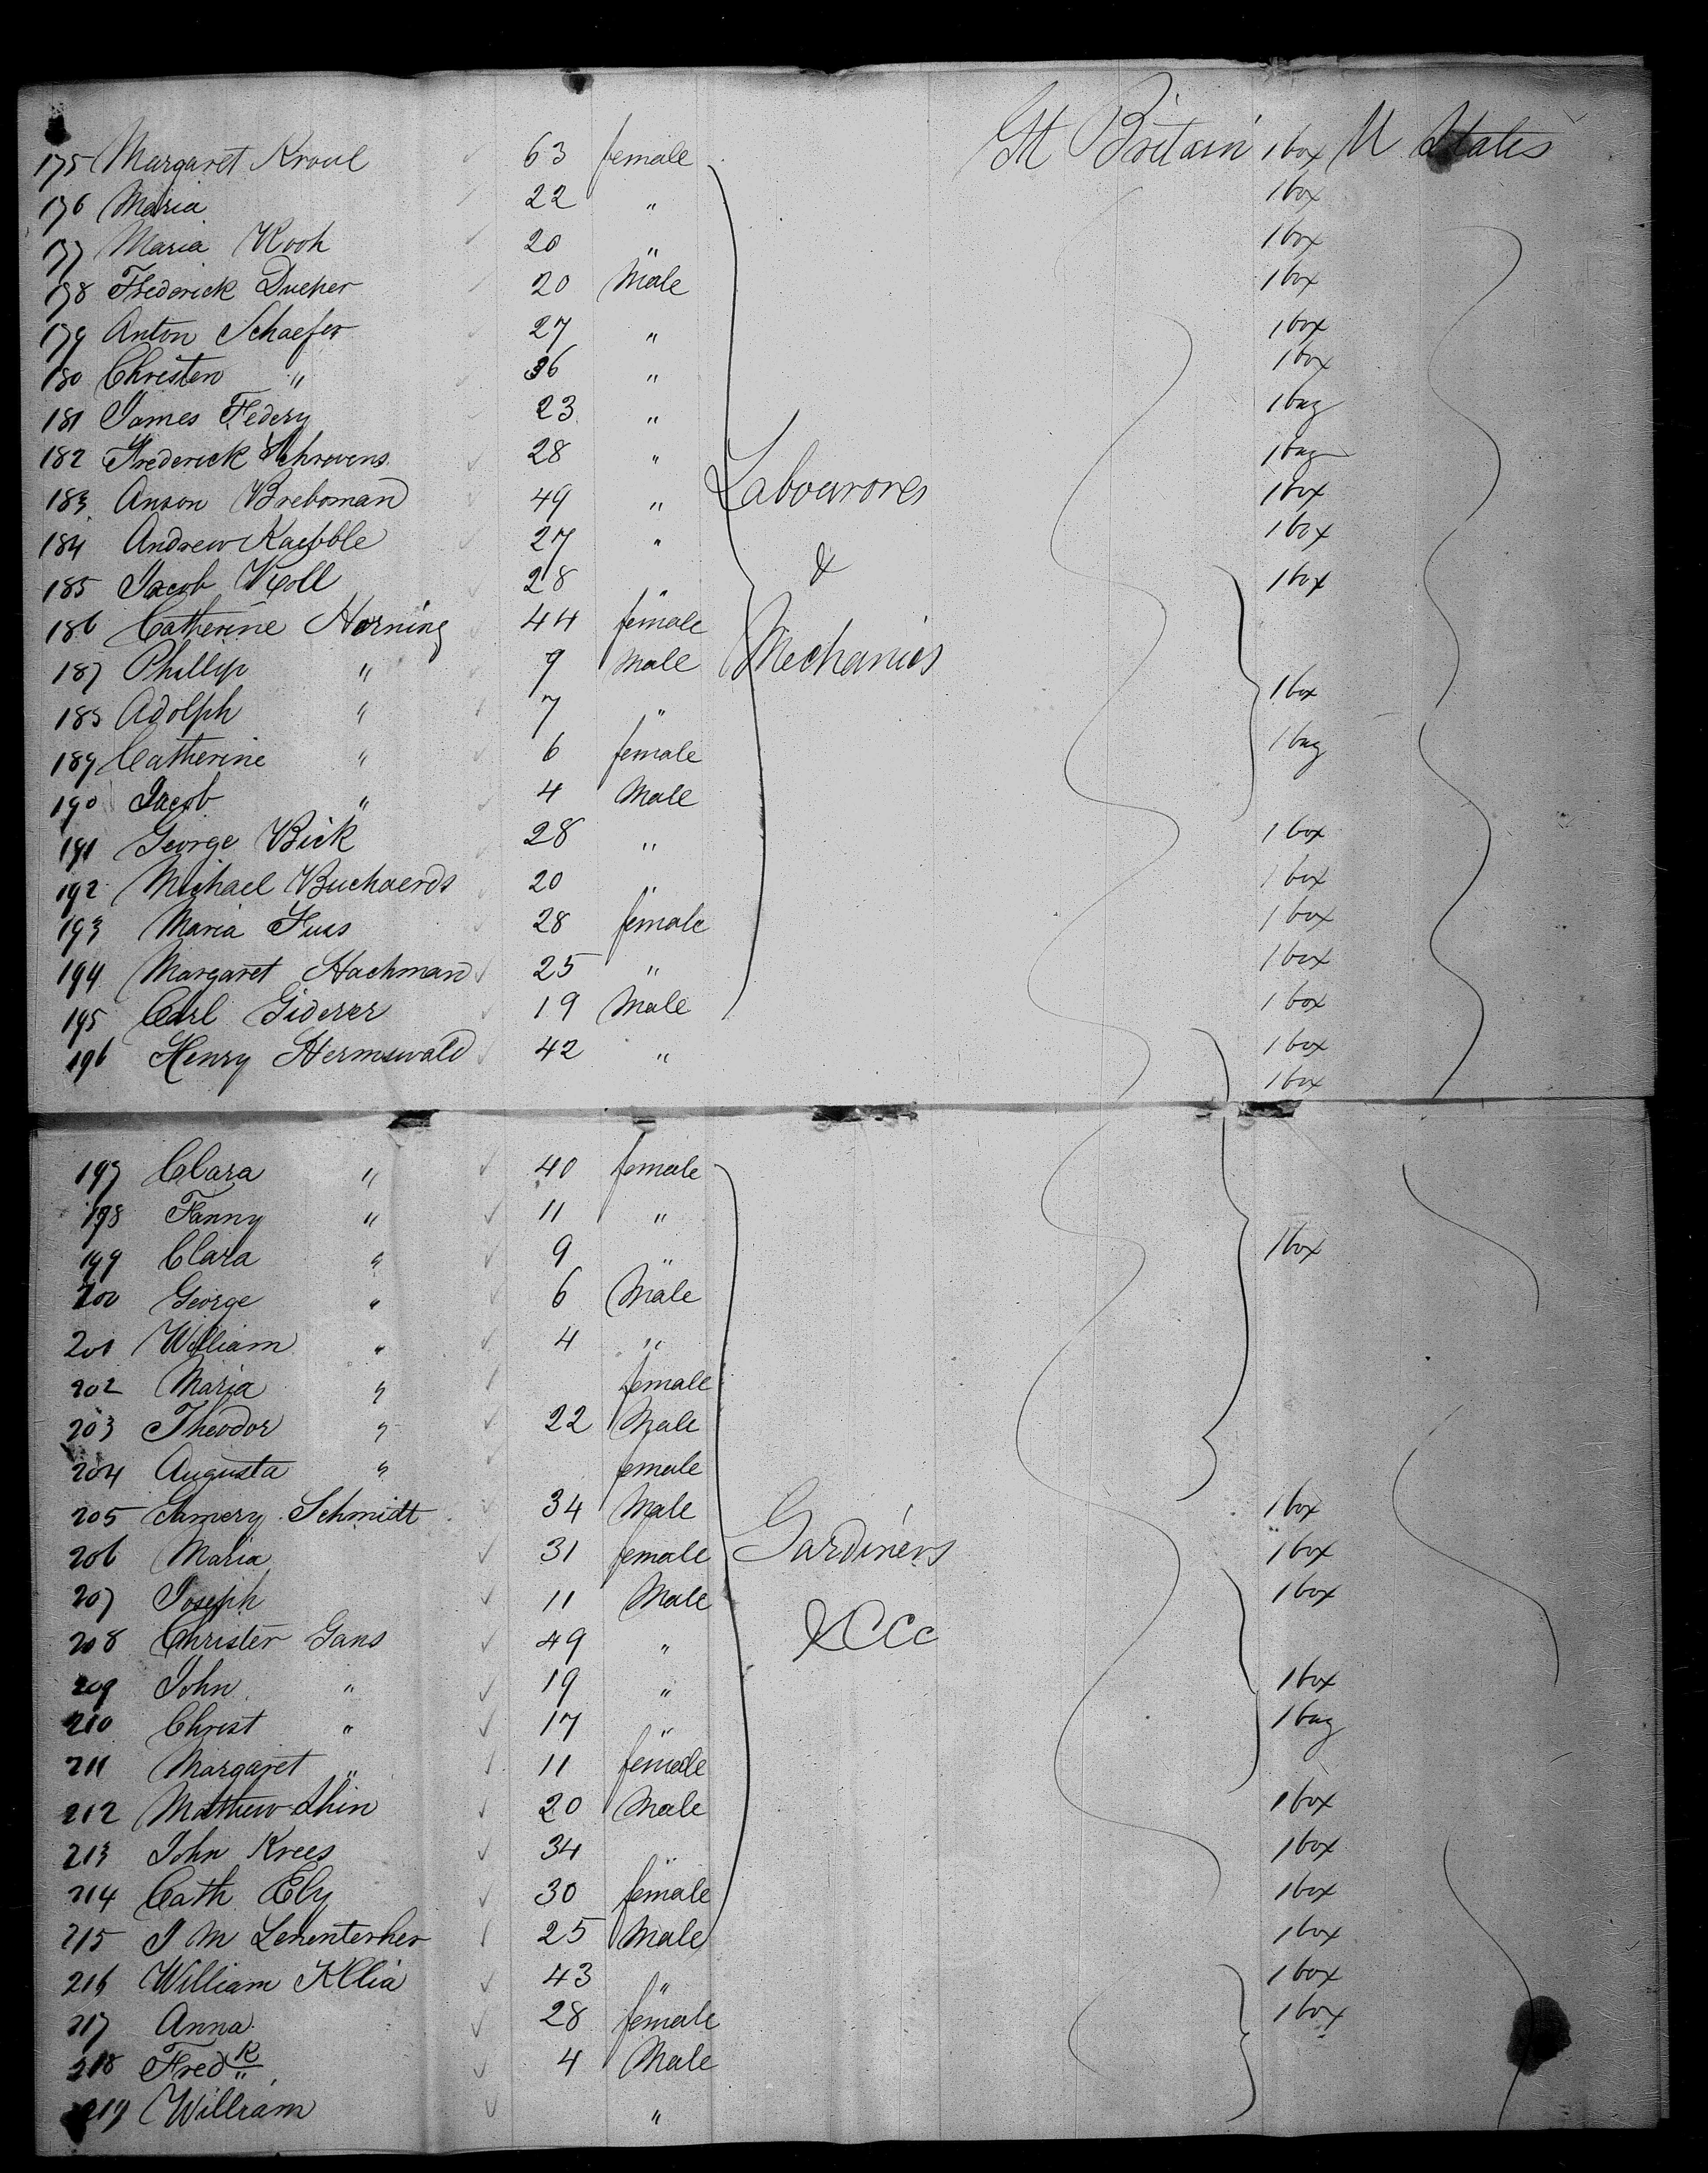 175 Margaret Kroul 63 female Gt Britain 1 box U States
176 Maria 22 " 1 box
177 Maria Kooh 20 " 1 box
178 Frederick Dueper 20 Male 1 box
179 Anton Schaefer 27 " 1 box
180 Christen " 36 " 1 box
181 James Federy 23 " 1 bag
182 Frederick Schrovens 28 " 1 bag
183 Anson Breboman 49 " Labourores 1 box
184 Andrew Kaebble 27 " 1 box
185 Jacob Koll 28 " & 1 box
186 Catherine Horning 44 female
187 Phillip " 9 Male Mechanics 1 box
188 Adolph " 7 "
189 Catherine " 6 female 1 bag
190 Jacob " 4 Male
191 George Bick 28 " 1 box
192 Michael Buchaerds 20 " 1 box
193 Maria Fuss 28 female 1 box
194 Margaret Hachman 25 " 1 box
195 Carl Giderer 19 Male 1 box
196 Henry Hermswald 42 " 1 box
1 box
197 Clara " 40 female
198 Fanny " 11 "
199 Clara " 9 " 1 box
200 George " 6 Male
201 William " 4 "
202 Maria " female
203 Theodor " 22 Male
204 Augusta " female
205 Schmidt 34 Male 1 box
206 Maria 31 female Gardiners 1 box
207 Joseph 11 Male 1 box
208 Christer Gans 49 " &CCc
209 John " 19 " 1 box
210 Christ " 17 " 1 bag
211 Margaret " 11 female
212 Mathew Shin 20 Male 1 box
213 John Krees 34 " 1 box
214 Cath Ely 30 female 1 box
215 J M Lehenterher 25 Male 1 box
216 William Kllia 43 " 1 box
217 Anna 28 female 1 box
218 Fredk 4 Male
219 William "